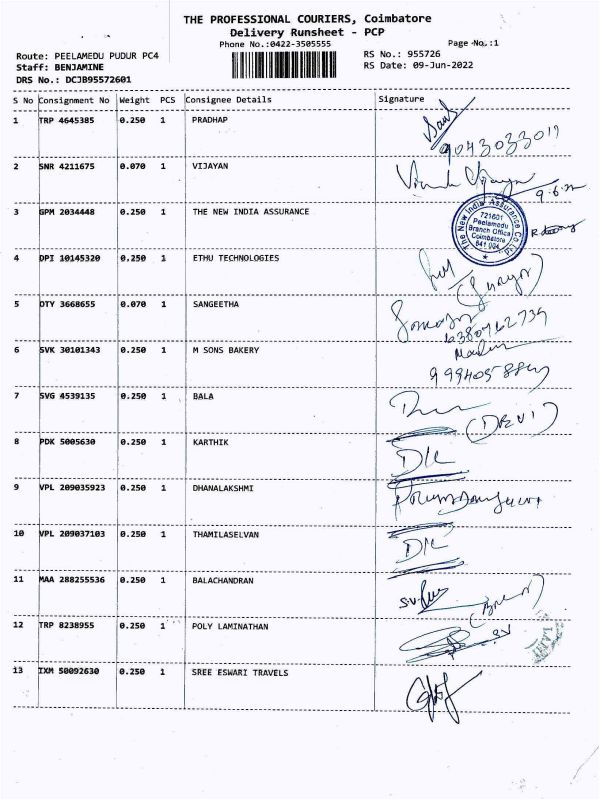 THE PROFESSIONAL COURIERS, Coimbatore
Delivery Runsheet - PCP
Phone No.:0422-3505555
Page No.:1
Route: PEELAMEDU PUDUR PC4
RS No.: 955726
Staff: BENJAMINE
RS Date: 09-Jun-2022
DRS No.: DCJB95572601
S No Consignment No Weight PCS Consignee Details Signature
1 TRP 4645385 0.250 1 PRADHAP
9043033011
2 SNR 4211675 0.070 1 VIJAYAN
9.6.22
3 GPM 2034448 0.250 1 THE NEW INDIA ASSURANCE
The New India Assurance Co. Ltd.
721601
Peelamedu
Branch Office
Coimbatore
641 004
4 DPI 10145320 0.250 1 ETHU TECHNOLOGIES
5 DTY 3668655 0.070 1 SANGEETHA
6380462739
6 SVK 30101343 0.250 1 M SONS BAKERY
7 SVG 4539135 0.250 1 BALA
(DEVI)
8 PDK 5005630 0.250 1 KARTHIK
D/L
9 VPL 209035923 0.250 1 DHANALAKSHMI
10 VPL 209037103 0.250 1 THAMILASELVAN
D/L
11 MAA 288255536 0.250 1 BALACHANDRAN
12 TRP 8238955 0.250 1 POLY LAMINATHAN
13 IXM 50092630 0.250 1 SREE ESWARI TRAVELS